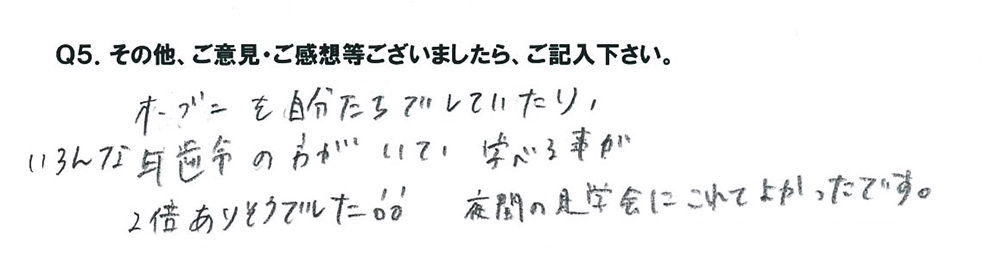 Q5. その他、ご意見・ご感想等ございましたら、ご記入下さい。
オーブンを自分たちでしていたり、
いろんな年齢の方がいて、学べる事が
2倍ありそうでした。 夜間の見学会にこれてよかったです。